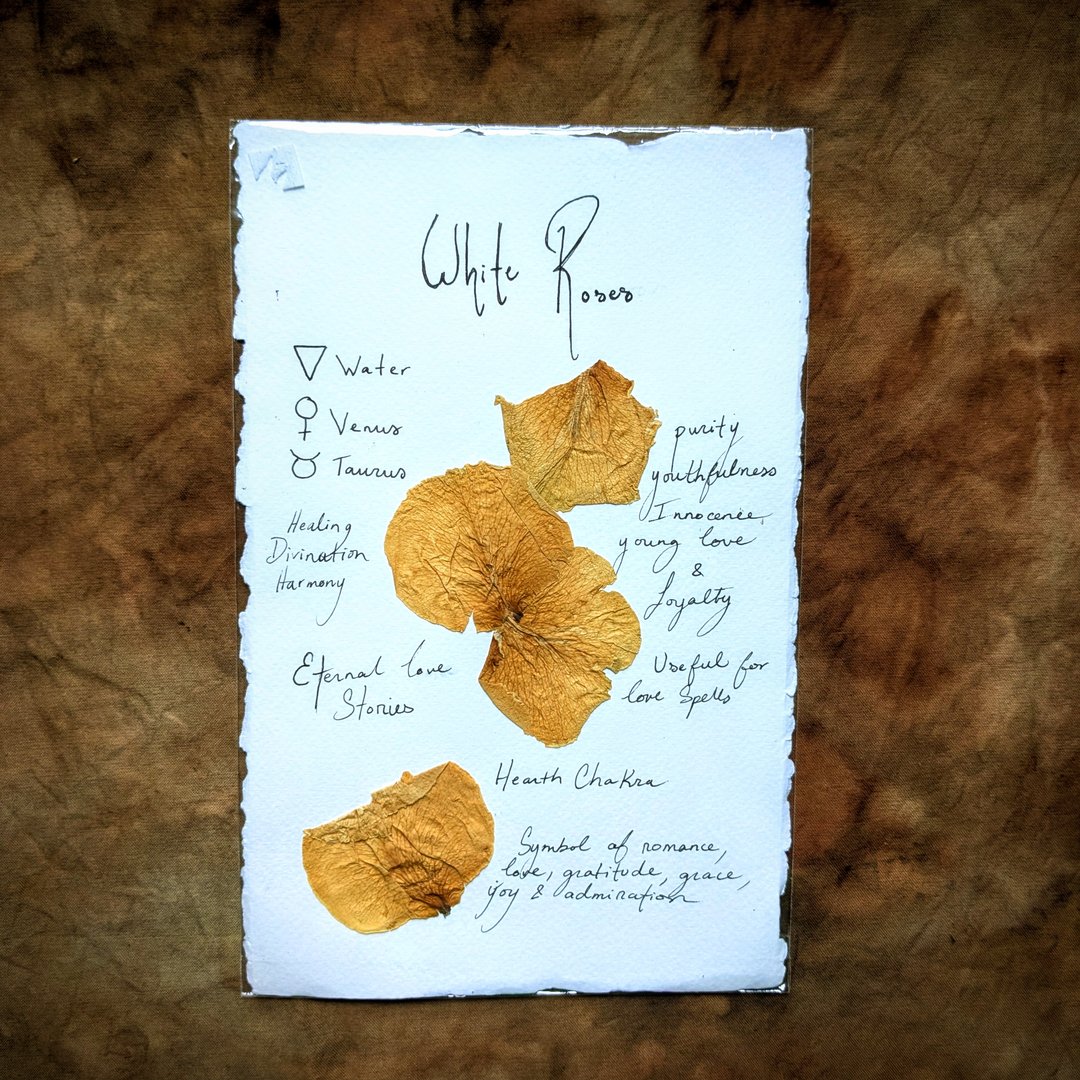 White Roses
Water
Venus
Taurus
Healing
Divination
Harmony
Eternal love
Stories
purity
youthfulness
Innocence,
young love
&
Loyalty
Useful for
love spells
Hearth Chakra
Symbol of romance,
love, gratitude, grace,
joy & admiration